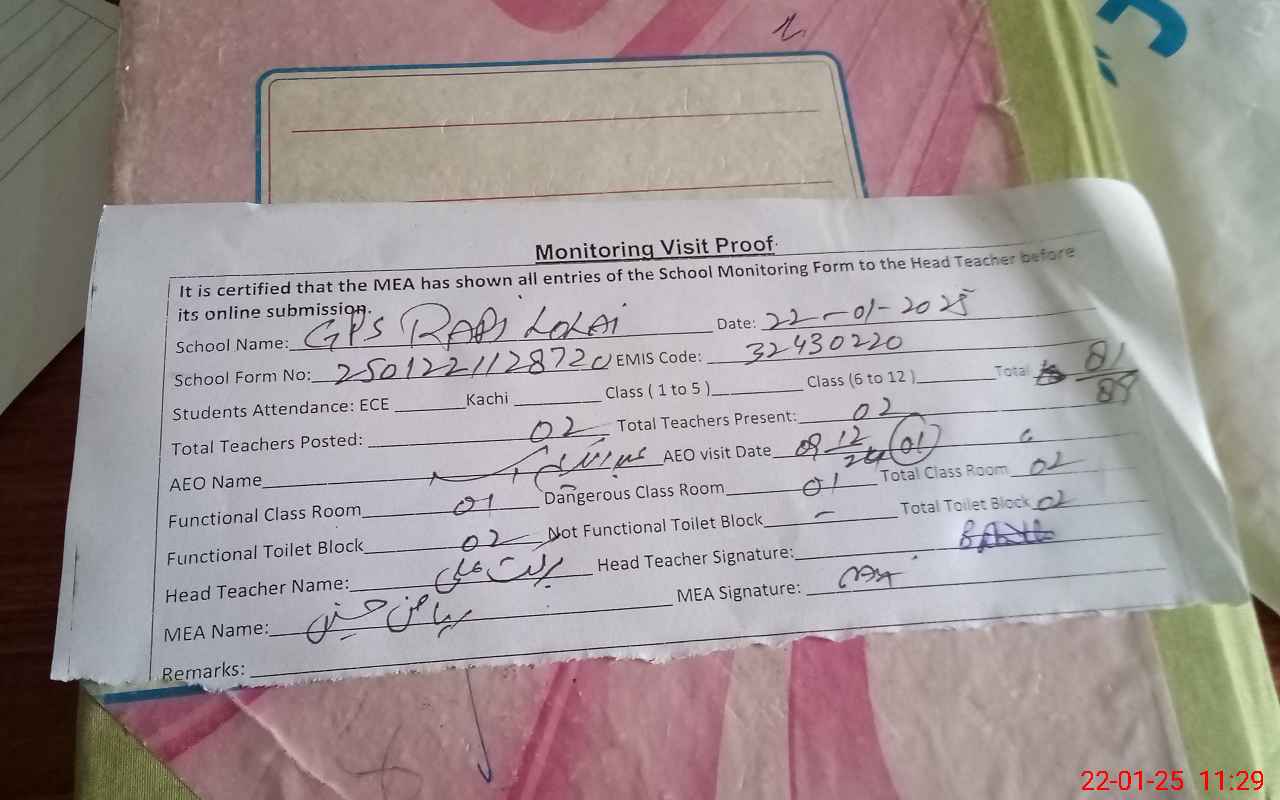 Monitoring Visit Proof
It is certified that the MEA has shown all entries of the School Monitoring Form to the Head Teacher before
its online submission.
School Name: GPS Date: 22-01-2025
School Form No: 250122112872 EMIS Code: 32430220
Students Attendance: ECE Kachi Class ( 1 to 5 ) Class (6 to 12 ) Total 81/89
Total Teachers Posted: 02 Total Teachers Present: 02
AEO Name AEO visit Date 09 12 24 01
Functional Class Room 01 Dangerous Class Room 01 Total Class Room 02
Functional Toilet Block 02 Not Functional Toilet Block - Total Toilet Block 02
Head Teacher Name: برکت علی Head Teacher Signature:
MEA Name: ریاض حسین MEA Signature:
Remarks:
22-01-25 11:29